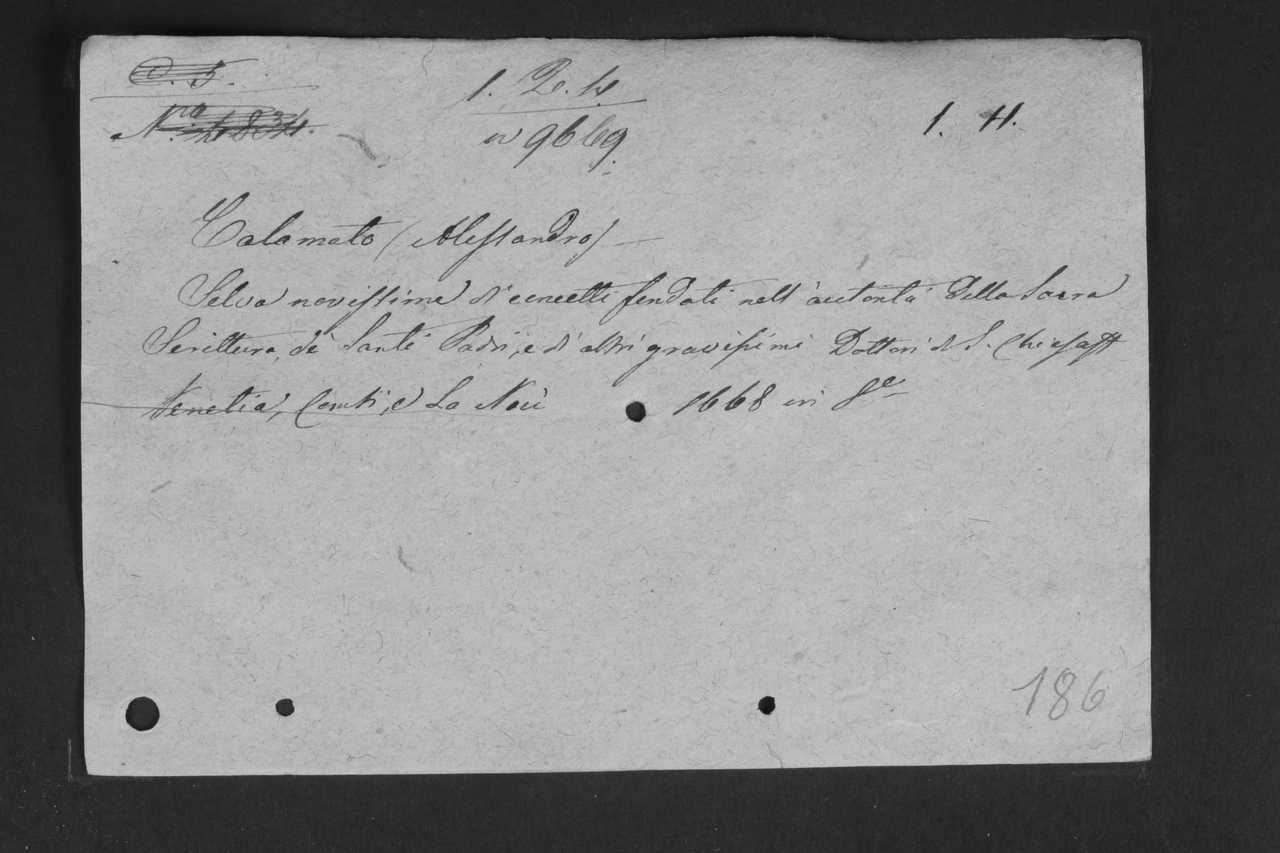 C. 5.
1. Q. w
Nro 4834.
n 9669.
1. H.
Calamato (Alessandro) —
Selva novissima di concetti fondati nell' autorità della Sacra
Scrittura, de' Santi Padri, e di altri gravissimi Dottori di S. Chiesa
Venetia, Conti, e La Noù 1668 in 8e
186